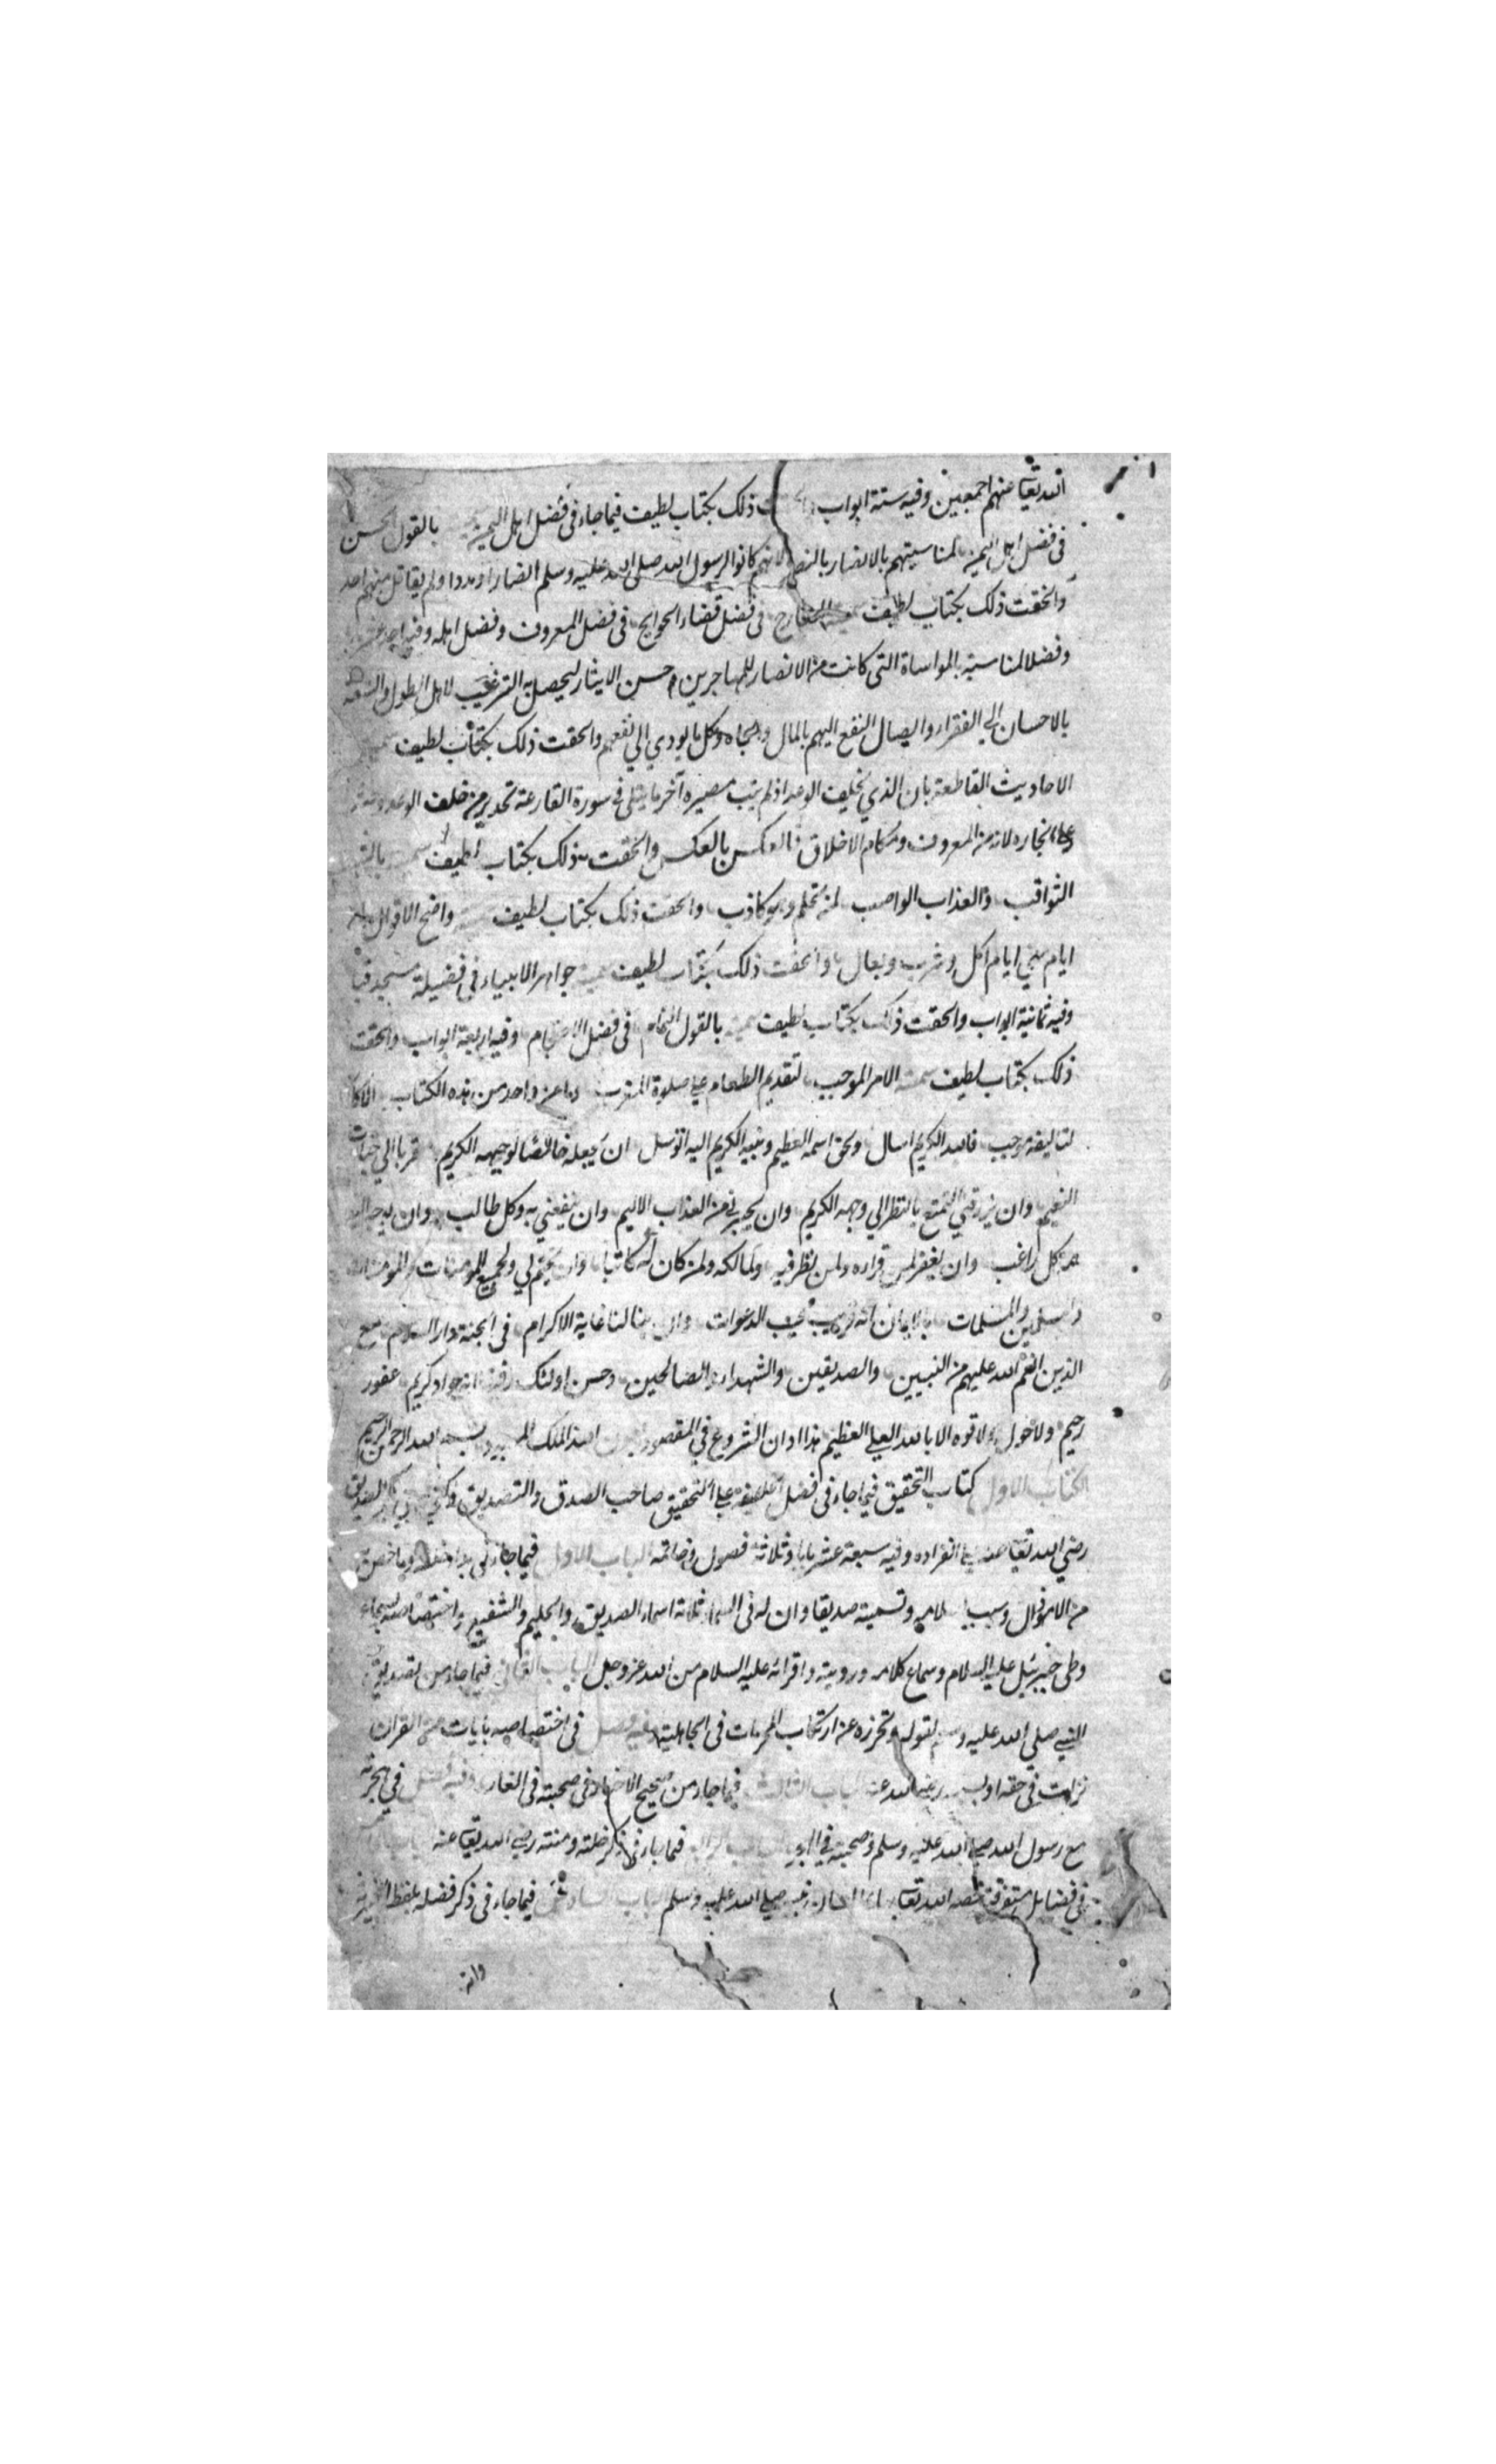 الله تعا عنهم اجمعين وفيه ستة ابواب ذلك بكتاب لطيف فيما جاء فى فضل اهل اليمن بالقول الحسن
فى فضل اهل اليمن لمناسبتهم بالانصار بالنصر لانهم كانوا لرسول الله صلى الله عليه وسلم انصارا ومددا ولم يقاتل منهم احد
والحقت ذلك بكتاب لطيف فى فضل قضاء الحوايج فى فضل المعروف وفضل اهله وفيه
وفضلا لمناسبته بالمواساة التى كانت من الانصار للمهاجرين وحسن الايثار ليحصل به الترغيب لاهل الطول والسعة
بالاحسان الى الفقراء وايصال النفع اليهم بالمال والجاه وكل ما يودي الى نفعهم والحقت ذلك بكتاب لطيف
الاحاديث القاطعة بان الذي يخلف الوعد اذا لم يتب مصيره آخر ما يتلى فى سورة القارعة تحذير من خلف الوعد
على انجازه لانه من المعروف ومكارم الاخلاق فالعكس بالعكس والحقت ذلك بكتاب لطيف
الثواقب والعذاب الواصب لمن تحلم وهو كاذب والحقت ذلك بكتاب لطيف واضح الاقوال
ايام منى ايام اكل وشرب وبعال والحقت ذلك بكتاب لطيف سميته جواهر الانبياء فى فضيلة مسجد قبا
وفيه ثمانية ابواب والحقت ذلك بكتاب لطيف سميته بالقول التمام فى فضل وفيه اربعة ابواب والحقت
ذلك بكتاب لطيف سميته الامر الموجب لتقديم الطعام على صلوة المغرب وما من واحد من هذه الكتاب الا كان
لتاليفه موجب فالله الكريم اسال وبحق اسمه العظيم ونبيه الكريم اليه اتوسل ان يجعله خالصا لوجهه الكريم مقربا الى جنات
النعيم وان يرزقني التمتع بالنظر الى وجهه الكريم وان يجيرني من العذاب الاليم وان ينفعني به وكل طالب وان
كل راغب وان يغفر لمن قراه ولمن نظر فيه ولمالكه ولمن كان له كاتبا وان يختم لي ولجميع المؤمنات والمؤمنين
والمسلمين والمسلمات بالايمان انه قريب مجيب الدعوات وان ينالنا غاية الاكرام فى الجنة دار السلام مع
الذين انعم الله عليهم من النبيين والصديقين والشهداء والصالحين وحسن اولئك رفيقا انه جواد كريم غفور
رحيم ولا حول ولا قوه الا بالله العلي العظيم هذا اوان الشروع في المقصود بعون الله الملك بسم الله الرحمن الرحيم
الكتاب الاول كتاب التحقيق فيما جاء فى فضل الخليفة على التحقيق صاحب الصدق والتصديق ابي بكر الصديق
رضي الله تعا عنه على انفراده وفيه سبعة عشر بابا وثلاثة فصول وخاتمه الباب الاول فيما جاء فى
من الاموال وسبب اسلامه وتسميته صديقا وان له فى السماء ثلاثة اسماء الصديق والحليم والشفيع واختصاصه بسماع
وطى جبرئيل عليه السلام وسماع كلامه ورويته واقرائه عليه السلام من الله عز وجل الباب الثاني فيما جاء من تصديق
النبي صلى الله عليه وسلم لقوله وتحرزه عن ارتكاب المحرمات فى الجاهلية وفيه فصل فى اختصاصه بايات من القران
نزلت في حقه رضي الله عنه الباب الثالث فيما جاء من صحيح الاخبار فى صحبته فى الغار وفيه فصل في هجرته
مع رسول الله صلى الله عليه وسلم وصحبته في الباب الرابع فيما جاء فى ذكر خلته ومنته رضي الله تعا عنه
في فضايل متفرقة خصه الله تعا صلى الله عليه وسلم الباب السادس فيما جاء فى ذكر فضله بلفظ
وانه